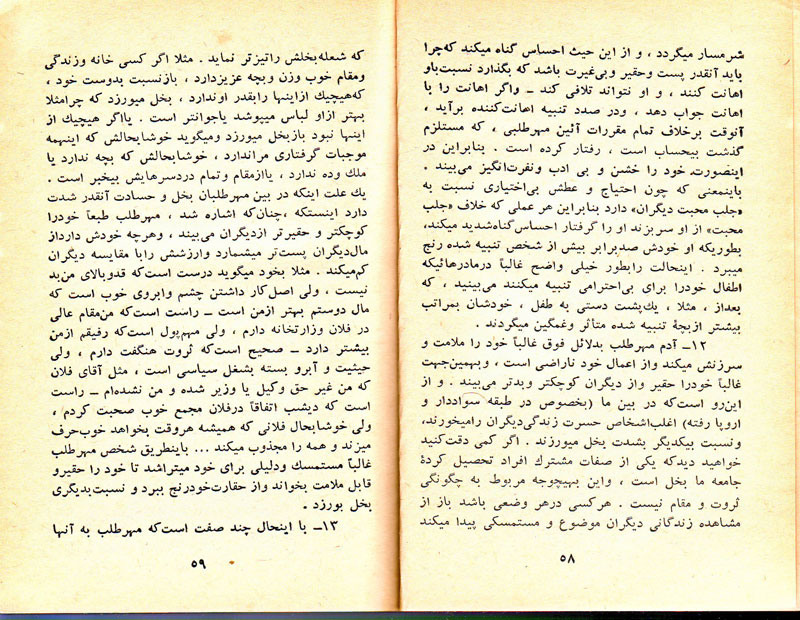 شرمسار میگردد ، و از این حیث احساس گناه میکند که چرا
باید آنقدر پست وحقیر وبی‌غیرت باشد که بگذارد نسبت‌باو
اهانت کنند ، و او نتواند تلافی کند ــ واگر اهانت را با
اهانت جواب دهد ، ودر صدد تنبیه اهانت‌کننده برآید ،
آنوقت برخلاف تمام مقررات آئین مهرطلبی ، که مستلزم
گذشت بیحساب است ، رفتار کرده است . بنابراین در
اینصورت خود را خشن و بی ادب ونفرت‌انگیز می‌بیند .
باینمعنی که چون احتیاج و عطش بی‌اختیاری نسبت به
«جلب محبت دیگران» دارد بنابراین هر عملی که خلاف «جلب
محبت» از او سربزند او را گرفتار احساس‌گناه‌شدید میکند،
بطوریکه او خودش صدبرابر بیش از شخص تنبیه شده رنج
میبرد . اینحالت رابطور خیلی واضح غالباً درمادرهائیکه
اطفال خودرا برای بی‌احترامی تنبیه میکنند می‌بینید ، که
بعداز ، مثلا ، یك‌پشت دستی به طفل ، خودشان بمراتب
بیشتر ازبچهٔ تنبیه شده متأثر وغمگین میگردند .
۱۲ــ آدم مهرطلب بدلائل فوق غالباً خود را ملامت و
سرزنش میکند واز اعمال خود ناراضی است ، وبهمین‌جهت
غالباً خودرا حقیر واز دیگران کوچکتر وبدتر می‌بیند . و از
این‌رو است‌که در بین ما (بخصوص در طبقه سواددار و
اروپا رفته) اغلب‌اشخاص حسرت زندگی‌دیگران رامیخورند،
ونسبت بیکدیگر بشدت بخل میورزند . اگر کمی دقت‌کنید
خواهید دیدکه یکی از صفات مشترك افراد تحصیل کردهٔ
جامعه ما بخل است ، واین بهیچوجه مربوط به چگونگی
ثروت و مقام نیست . هرکسی درهر وضعی باشد باز از
مشاهده زندگانی دیگران موضوع و مستمسکی پیدا میکند
۵۸
که شعله‌بخلش راتیزتر نماید . مثلا اگر کسی خانه وزندگی
ومقام خوب وزن وبچه عزیزدارد ، بازنسبت بدوست خود ،
که‌هیچیك ازاینها رابقدر اوندارد ، بخل میورزد که چرامثلا
بهتر ازاو لباس میپوشد یاجوانتر است . یااگر هیچیك از
اینها نبود بازبخل میورزد ومیگوید خوشابحالش که اینهمه
موجبات گرفتاری مراندارد ، خوشابحالش که بچه ندارد یا
ملك وده ندارد ، یاازمقام وتمام دردسرهایش بیخبر است .
یك علت اینکه در بین مهرطلبان بخل و حسادت آنقدر شدت
دارد اینستکه ،چنان‌که اشاره شد ، مهرطلب طبعاً خودرا
کوچکتر و حقیرتر ازدیگران می‌بیند ، وهرچه خودش دارداز
مال‌دیگران پست‌تر میشمارد وارزشش رابا مقایسه دیگران
کم‌میکند . مثلا بخود میگوید درست است‌که قدوبالای من‌بد
نیست ، ولی اصل‌کار داشتن چشم وابروی خوب است که
مال دوستم بهتر ازمن است ــ راست است‌که من‌مقام عالی
در فلان وزارتخانه دارم ، ولی مهم‌پول است‌که رفیقم ازمن
بیشتر دارد ــ صحیح است‌که ثروت هنگفت دارم ، ولی
حیثیت و آبرو بسته بشغل سیاسی است ، مثل آقای فلان
که من غیر حق وکیل یا وزیر شده و من نشده‌ام ــ راست
است که دیشب اتفاقاً درفلان مجمع خوب صحبت کردم ،
ولی خوشابحال فلانی که همیشه هروقت بخواهد خوب‌حرف
میزند و همه را مجذوب میکند ... باینطریق شخص مهرطلب
غالباً مستمسك ودلیلی برای خود میتراشد تا خود را حقیرو
قابل ملامت بخواند واز حقارت‌خودرنج ببرد و نسبت‌بدیگری
بخل بورزد .
۱۳ــ با اینحال چند صفت است‌که مهرطلب به آنها
۵۹